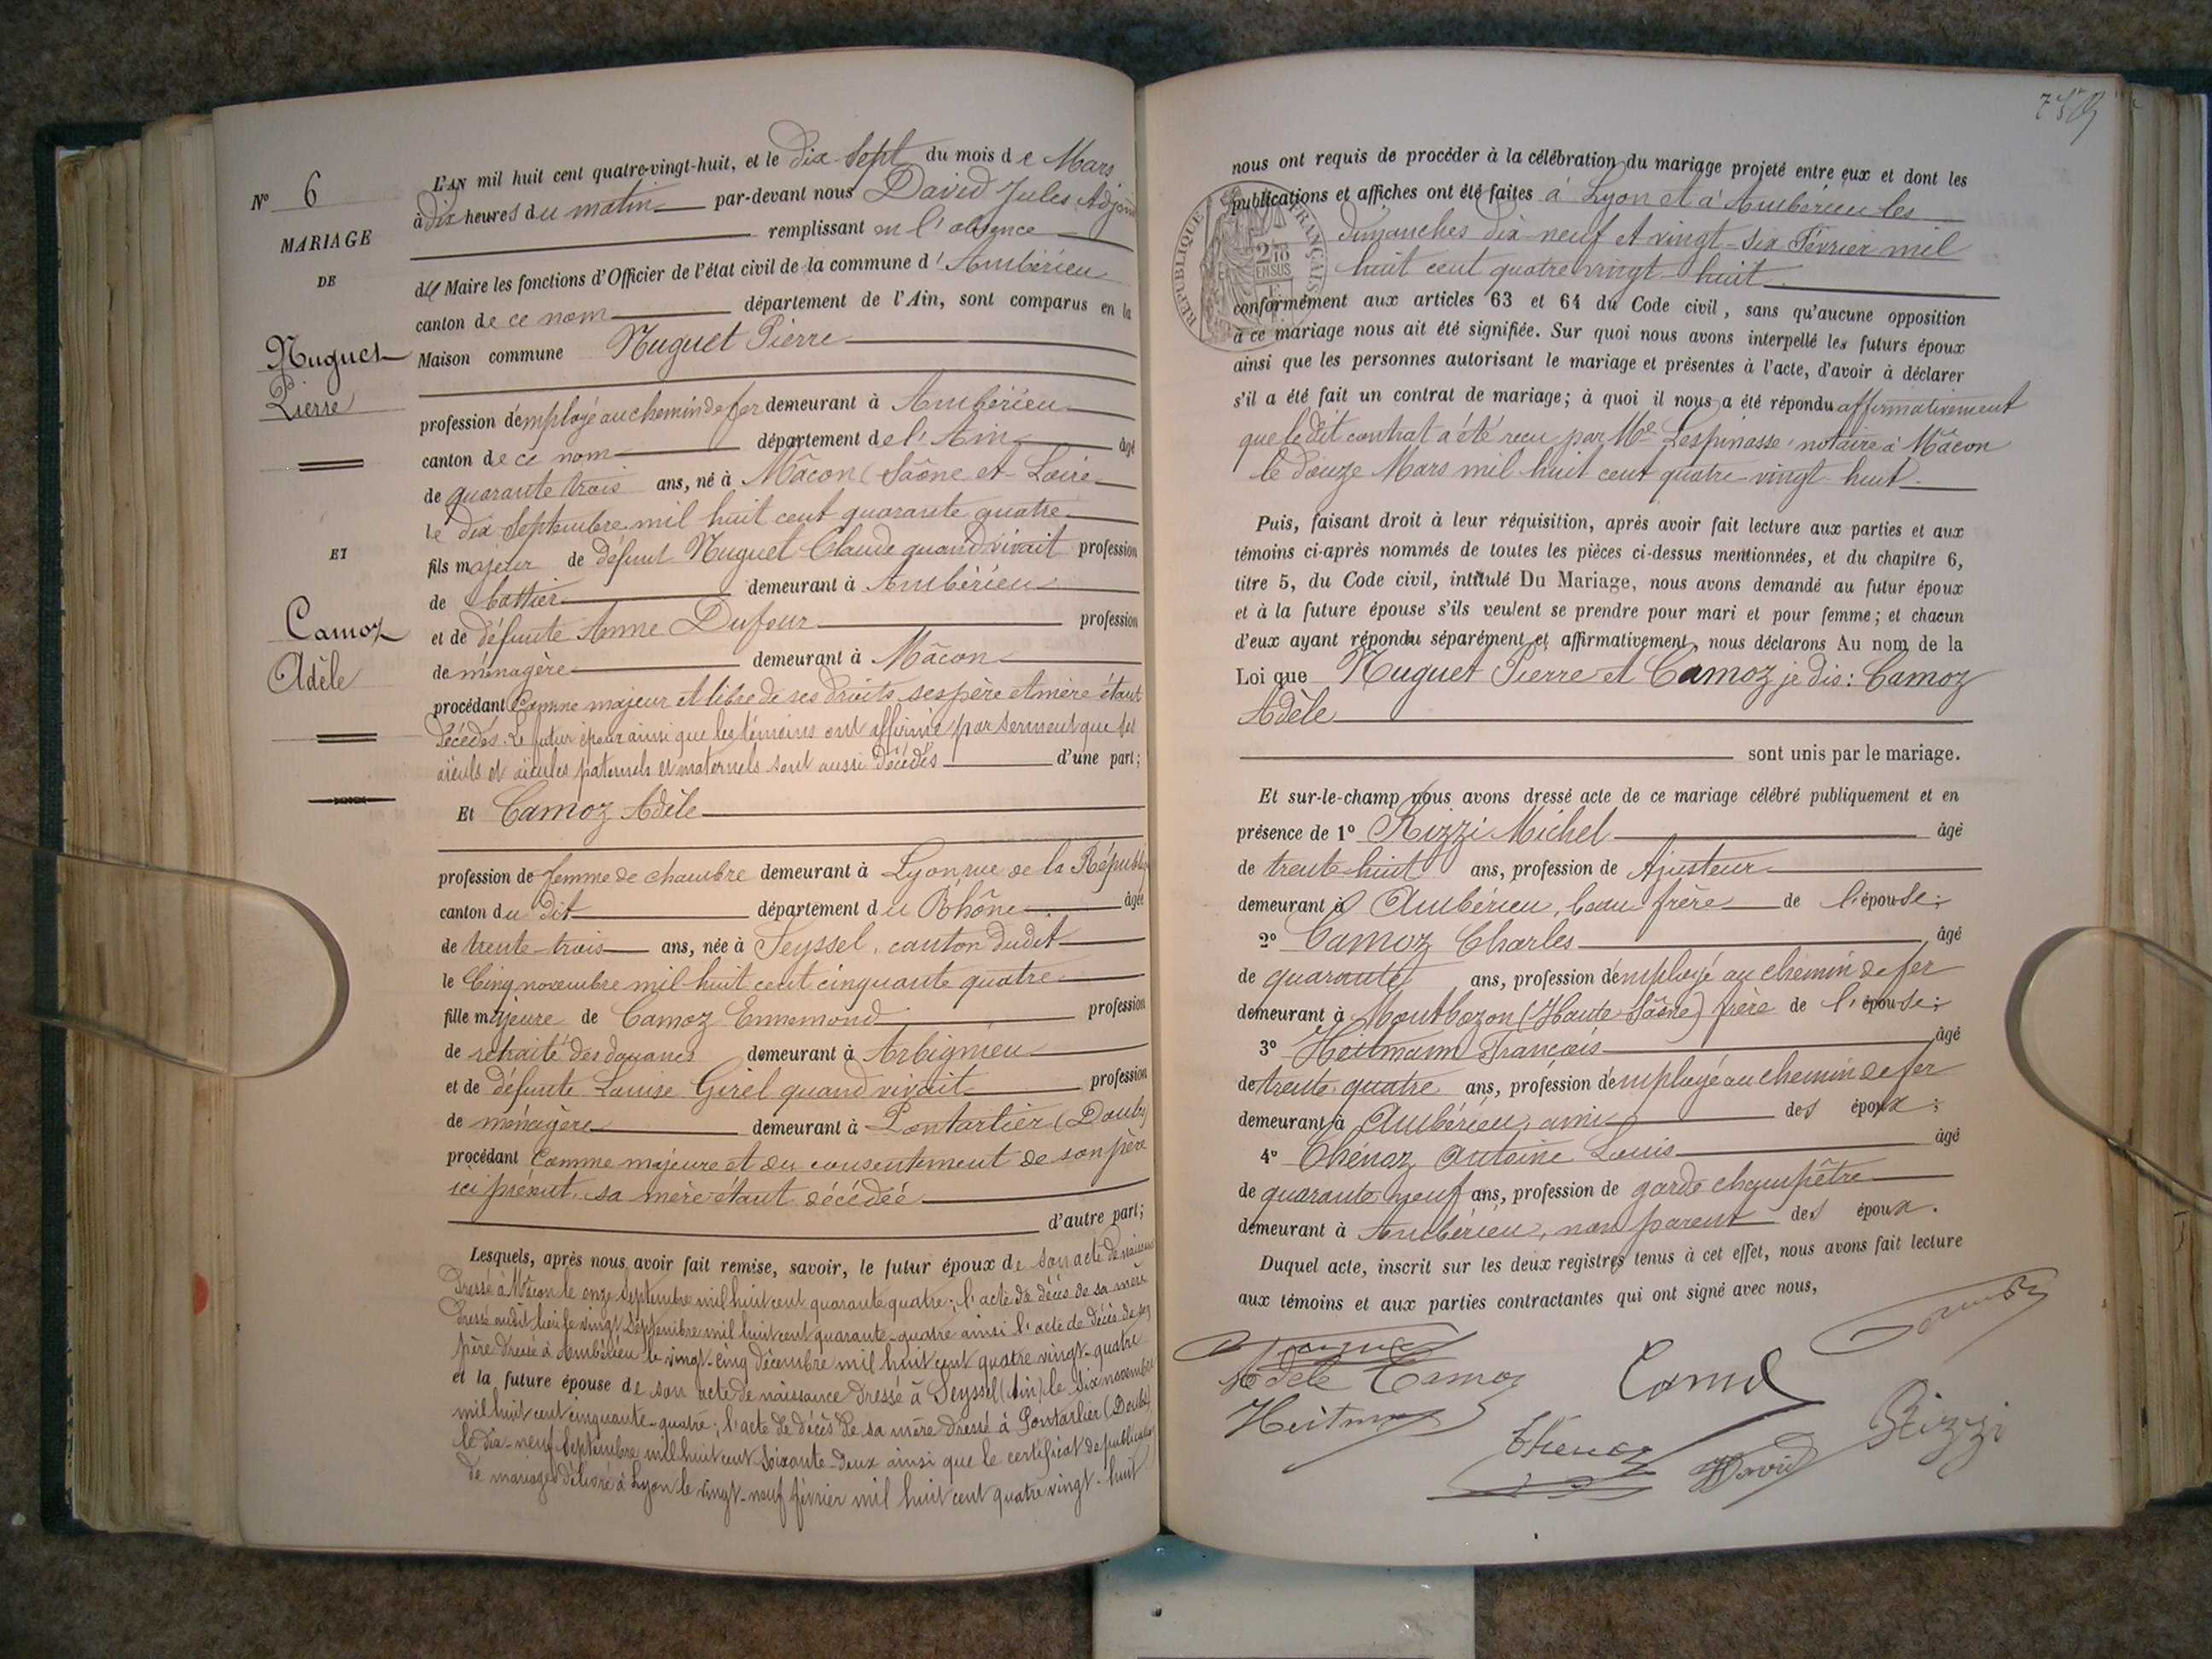 N° 6
MARIAGE
DE
Nuguet
Pierre
ET
Camoz
Adèle
L'AN mil huit cent quatre-vingt-huit, et le dix-sept du mois de Mars
à dix heures du matin par-devant nous David Jules Adjoint
remplissant en l'absence
du Maire les fonctions d'Officier de l'état civil de la commune d'Ambérieu
canton de ce nom département de l'Ain, sont comparus en la
Maison commune Nuguet Pierre
profession d'employé au chemin de fer demeurant à Ambérieu
canton de ce nom département de l'Ain âgé
de quarante trois ans, né à Mâcon (Saône et Loire
le dix Septembre mil huit cent quarante quatre
fils majeur de défunt Nuguet Claude quand vivait profession
de demeurant à Ambérieu
et de défunte Anne Dufour profession
de ménagère demeurant à Mâcon
procédant comme majeur et libre de ses droits, ses père et mère étant
décédés. Le futur époux ainsi que les témoins ont affirmé par serment que ses
aïeuls et aïeules paternels et maternels sont aussi décédés d'une part;
Et Camoz Adèle
profession de femme de chambre demeurant à Lyon rue de la Républiq
canton du dit département du Rhône âgée
de trente-trois ans, née à Seyssel, canton dudit
le cinq novembre mil huit cent cinquante quatre
fille majeure de Camoz Ennemond profession
de retraité des douanes demeurant à Arbignieu
et de défunte Louise Girel quand vivait profession
de ménagère demeurant à Pontarlier (Doubs)
procédant comme majeure et du consentement de son père
ici présent, sa mère étant décédée
d'autre part;
Lesquels, après nous avoir fait remise, savoir, le futur époux de son acte de naissance
dressé à Mâcon le onze Septembre mil huit cent quarante quatre; l'acte de décès de sa mère
dressé audit lieu le vingt Septembre mil huit cent quarante-quatre ainsi l'acte de décès de son
père dressé à Ambérieu le vingt-cinq décembre mil huit cent quatre vingt-quatre
et la future épouse de son acte de naissance dressé à Seyssel (Ain) le six novembre
mil huit cent cinquante-quatre; l'acte de décès de sa mère dressé à Pontarlier (Doubs)
le dix-neuf Septembre mil huit cent soixante-deux ainsi que le certificat de publication
de mariage délivré à Lyon le vingt-neuf février mil huit cent quatre vingt-huit
nous ont requis de procéder à la célébration du mariage projeté entre eux et dont les
publications et affiches ont été faites à Lyon et à Ambérieu les
dimanches dix-neuf et vingt-six Février mil
huit cent quatre vingt-huit
RÉPUBLIQUE FRANÇAISE
2/10 EN SUS
conformément aux articles 63 et 64 du Code civil, sans qu'aucune opposition
à ce mariage nous ait été signifiée. Sur quoi nous avons interpellé les futurs époux
ainsi que les personnes autorisant le mariage et présentes à l'acte, d'avoir à déclarer
s'il a été fait un contrat de mariage; à quoi il nous a été répondu affirmativement
que le dit contrat a été reçu par Me Lespinasse, notaire à Mâcon
le douze Mars mil huit cent quatre vingt huit
Puis, faisant droit à leur réquisition, après avoir fait lecture aux parties et aux
témoins ci-après nommés de toutes les pièces ci-dessus mentionnées, et du chapitre 6,
titre 5, du Code civil, intitulé Du Mariage, nous avons demandé au futur époux
et à la future épouse s'ils veulent se prendre pour mari et pour femme; et chacun
d'eux ayant répondu séparément et affirmativement, nous déclarons Au nom de la
Loi que Nuguet Pierre et Camoz je dis: Camoz
Adèle
sont unis par le mariage.
Et sur-le-champ nous avons dressé acte de ce mariage célébré publiquement et en
présence de 1° Rizzi Michel âgé
de trente-huit ans, profession de Ajusteur
demeurant à Ambérieu, beau-frère de l'épouse;
2° Camoz Charles âgé
de quarante ans, profession d'employé au chemin de fer
demeurant à Montbozon (Haute-Saône) frère de l'épouse;
3° Heitmann François âgé
de trente-quatre ans, profession d'employé au chemin de fer
demeurant à Ambérieu, ami des époux;
4° Thénoz Antoine Louis âgé
de quarante neuf ans, profession de garde champêtre
demeurant à Ambérieu, non parent des époux.
Duquel acte, inscrit sur les deux registres tenus à cet effet, nous avons fait lecture
aux témoins et aux parties contractantes qui ont signé avec nous,
Adèle Camoz
Thenoz
David
Rizzi